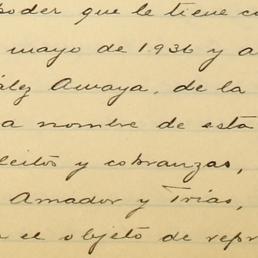 poder que le tiene co
mayo de 1936 y a
lez Amaya, de la
a nombre de esta
leitos y cobranzas,
Amador y Trias,
el objeto de repr